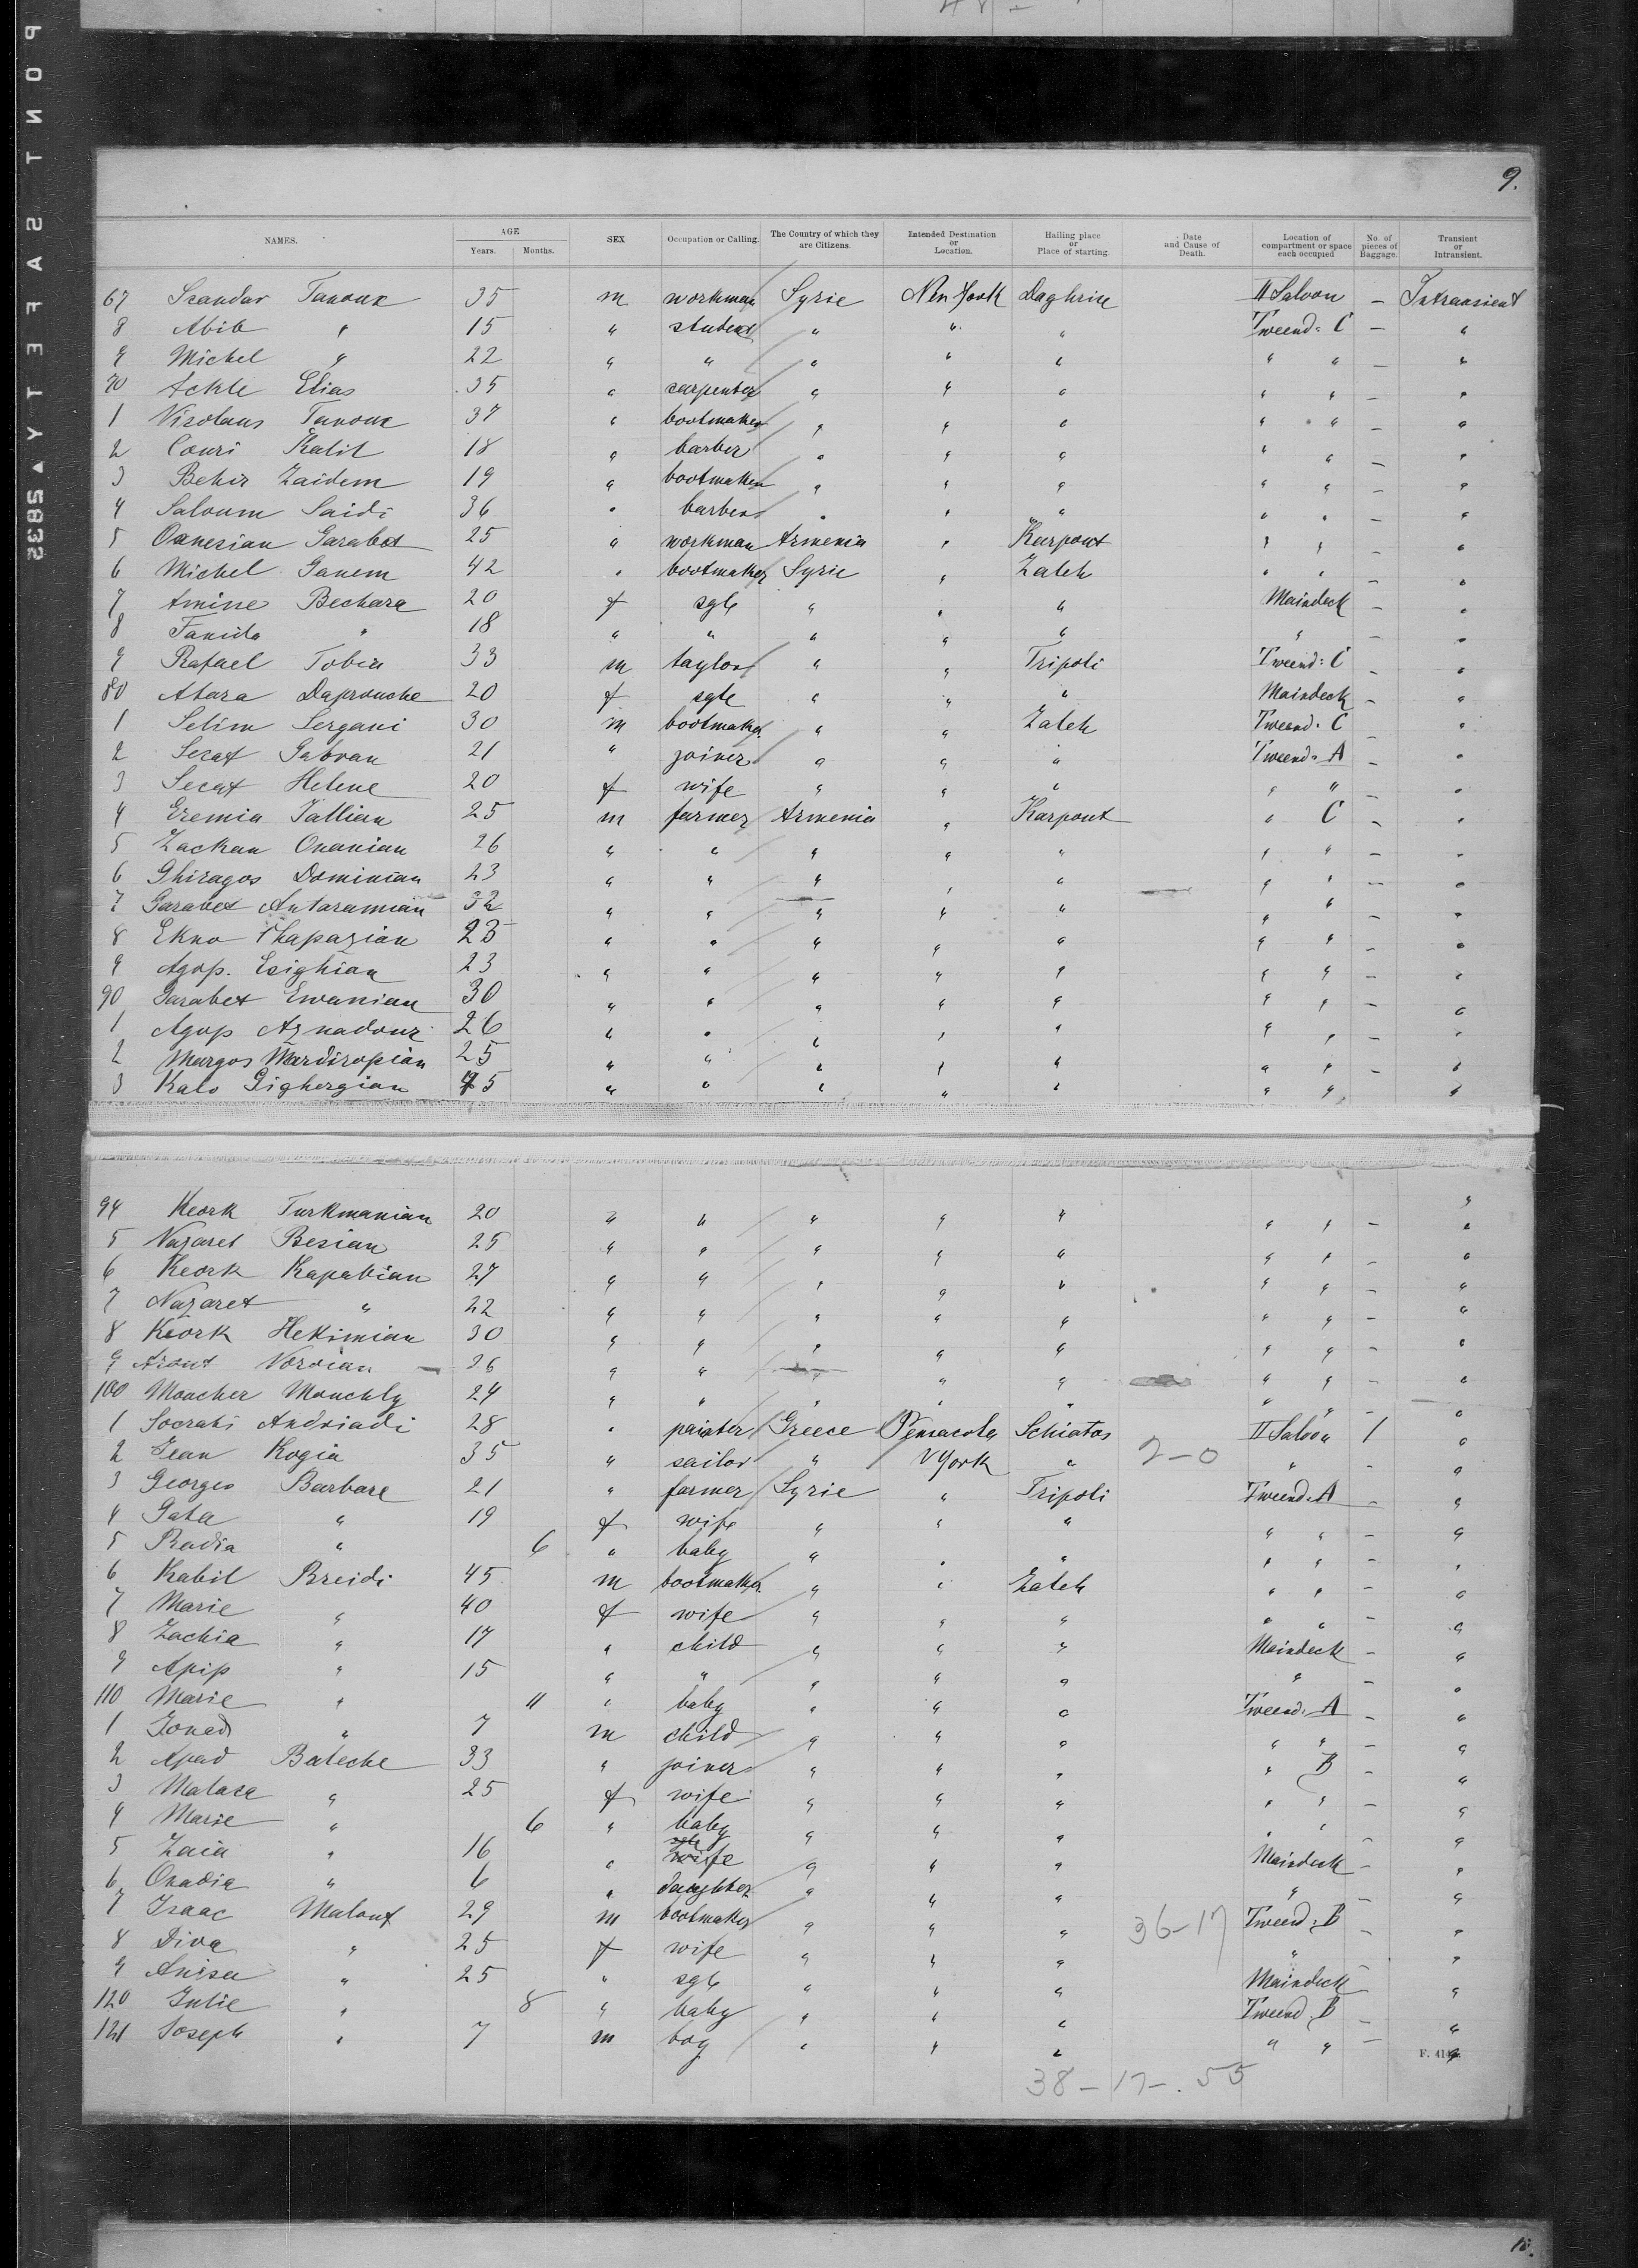 PONT SAFETY ▲ 5832
9.
NAMES. AGE Years. Months. SEX Occupation or Calling. The Country of which they are Citizens. Intended Destination or Location. Hailing place or Place of starting. Date and Cause of Death. Location of compartment or space each occupied No. of pieces of Baggage. Transient or Intransient.
67 Scandar Tanoux 35 m workman Syrie New York Daghrin II Saloon — Intransient
8 Abib " 15 " student " " " Tweend: C — "
9 Michel " 22 " " " " " " " — "
70 Ackle Elias 35 " carpenter " " " " " — "
1 Nicolaus Tanoux 37 " bootmaker " " " " " — "
2 Couri Kalil 18 " barber " " " " " — "
3 Behir Zaidem 19 " bootmaker " " " " " — "
4 Saloum Saidi 36 " barber " " " " " — "
5 Oanesian Garabet 25 " workman Armenia " Karpout " " — "
6 Michel Ganem 42 " bootmaker Syrie " Zaleh " " — "
7 Amine Bechara 20 f sgle " " " Maindeck — "
8 Tanida " 18 " " " " " " — "
9 Rafael Tobia 33 m taylor " " Tripoli Tweend: C — "
80 Atara Daprouche 20 f sgle " " " Maindeck — "
1 Selim Sergani 30 m bootmaker " " Zaleh Tweend: C "
2 Secaf Gabran 21 " joiner " " " Tweend: A — "
3 Secaf Helene 20 f wife " " " " " — "
4 Eremia Tallian 25 m farmer Armenia " Karpout " C — "
5 Zackan Onanian 26 " " " " " " " — "
6 Ghiragos Dominian 23 " " " " " " " — "
7 Garabet Antaramian 32 " " " " " " " — "
8 Ekno Chapazian 23 " " " " " " " — "
9 Agop. Esighian 23 " " " " " " " — "
90 Garabet Ewanian 30 " " " " " " " — "
1 Agop Aznadour 26 " " " " " " " "
2 Margos Mardiropian 25 " " " " " " " — "
3 Kalo Gighergian 45 " " " " " " " "
94 Keork Turkmanian 20 " " " " " " " — "
5 Nazaret Besian 25 " " " " " " " — "
6 Keork Kapabian 27 " " " " " " " — "
7 Nazaret " 22 " " " " " " " — "
8 Keork Hekimian 30 " " " " " " " — "
9 Aront Norvian 26 " " " " " " " — "
100 Moucher Mouchly 24 " " " " " " " — "
1 Socrati Andriadi 28 " painter Greece Pensacola Schiatos II Saloon 1 "
2 Jean Kogia 35 " sailor " N York " 2-0 " - "
3 Georges Barbare 21 " farmer Syrie " Tripoli Tweend: A — "
4 Gata " 19 f wife " " " " " — "
5 Radia " 6 " baby " " " " " — "
6 Kabil Breidi 45 m bootmaker " " Zaleh " " — "
7 Marie " 40 f wife " " " " " — "
8 Zachia " 17 " child " " " Maindeck — "
9 Apip " 15 " " " " " " "
110 Marie " 11 " baby " " " Tweend. A — "
1 Jonad " 7 m child " " " " " — "
2 Apad Bateche 33 " joiner " " " " B — "
3 Malaca " 25 f wife " " " " " — "
4 Marie " 6 " baby " " " " " — "
5 Zaia " 16 " wife " " " Maindeck — "
6 Onadia " 6 " daughter " " " " — "
7 Isaac Malouf 29 m bootmaker " " " 36-17 Tweend: B — "
8 Diva " 25 f wife " " " " — "
9 Anisa " 25 " sgle " " " Maindeck "
120 Julie " 8 " baby " " " Tweend. B — "
121 Joseph " 7 m boy " " " " " — "
38 - 17 - . 55